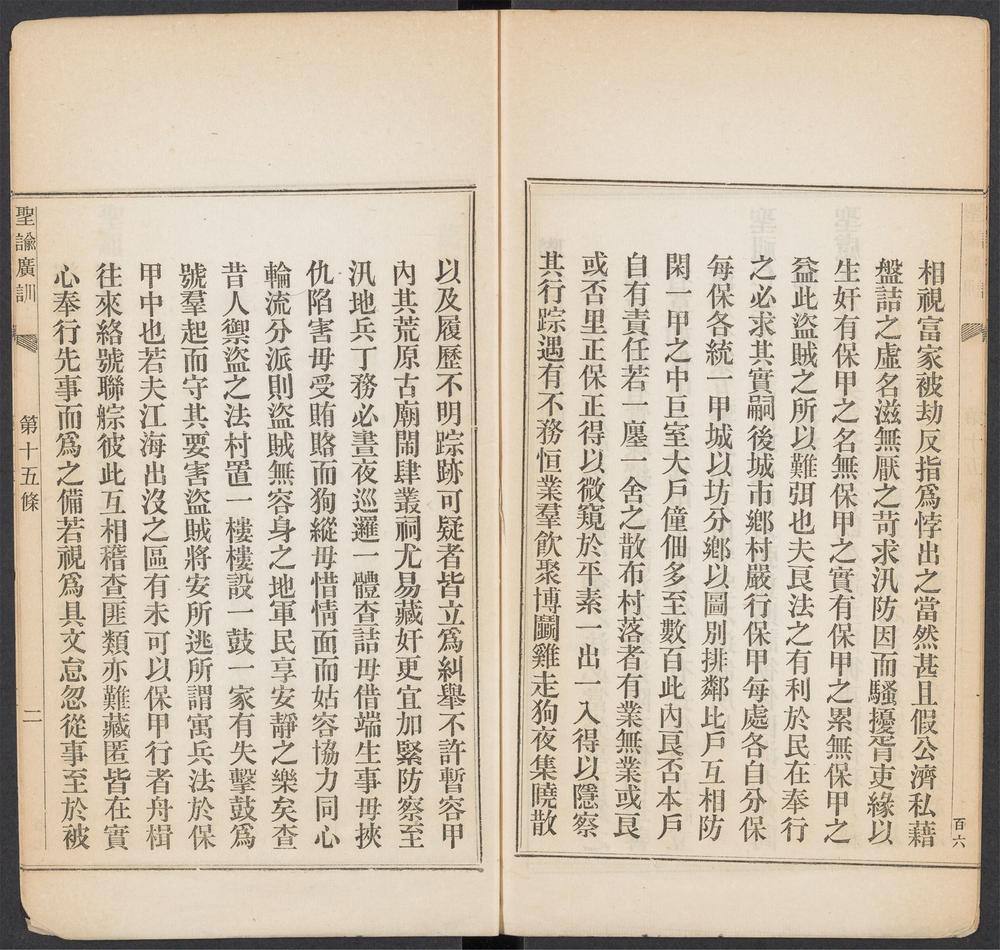 相視富家被劫反指爲悖出之當然甚且假公濟私藉
盤詰之虛名滋無厭之苛求汛防因而騷擾胥吏緣以
生奸有保甲之名無保甲之實有保甲之累無保甲之
益此盜賊之所以難弭也夫良法之有利於民在奉行
之必求其實嗣後城市鄉村嚴行保甲每處各自分保
每保各統一甲城以坊分鄉以圖別排鄰比戶互相防
閑一甲之中巨室大戶僮佃多至數百此內良否本戶
自有責任若一廛一舍之散布村落者有業無業或良
或否里正保正得以微窺於平素一出一入得以隱察
其行踪遇有不務恒業羣飲聚博鬭雞走狗夜集曉散
百六
以及履歷不明踪跡可疑者皆立爲糾舉不許暫容甲
內其荒原古廟鬧肆叢祠尤易藏奸更宜加緊防察至
汛地兵丁務必晝夜巡邏一體查詰毋借端生事毋挾
仇陷害毋受賄賂而狥縱毋惜情面而姑容協力同心
輪流分派則盜賊無容身之地軍民享安靜之樂矣查
昔人禦盜之法村置一樓樓設一鼓一家有失擊鼓爲
號羣起而守其要害盜賊將安所逃所謂寓兵法於保
甲中也若夫江海出沒之區有未可以保甲行者舟楫
往來絡號聯䑸彼此互相稽查匪類亦難藏匿皆在實
心奉行先事而爲之備若視爲具文怠忽從事至於被
聖諭廣訓
第十五條
二